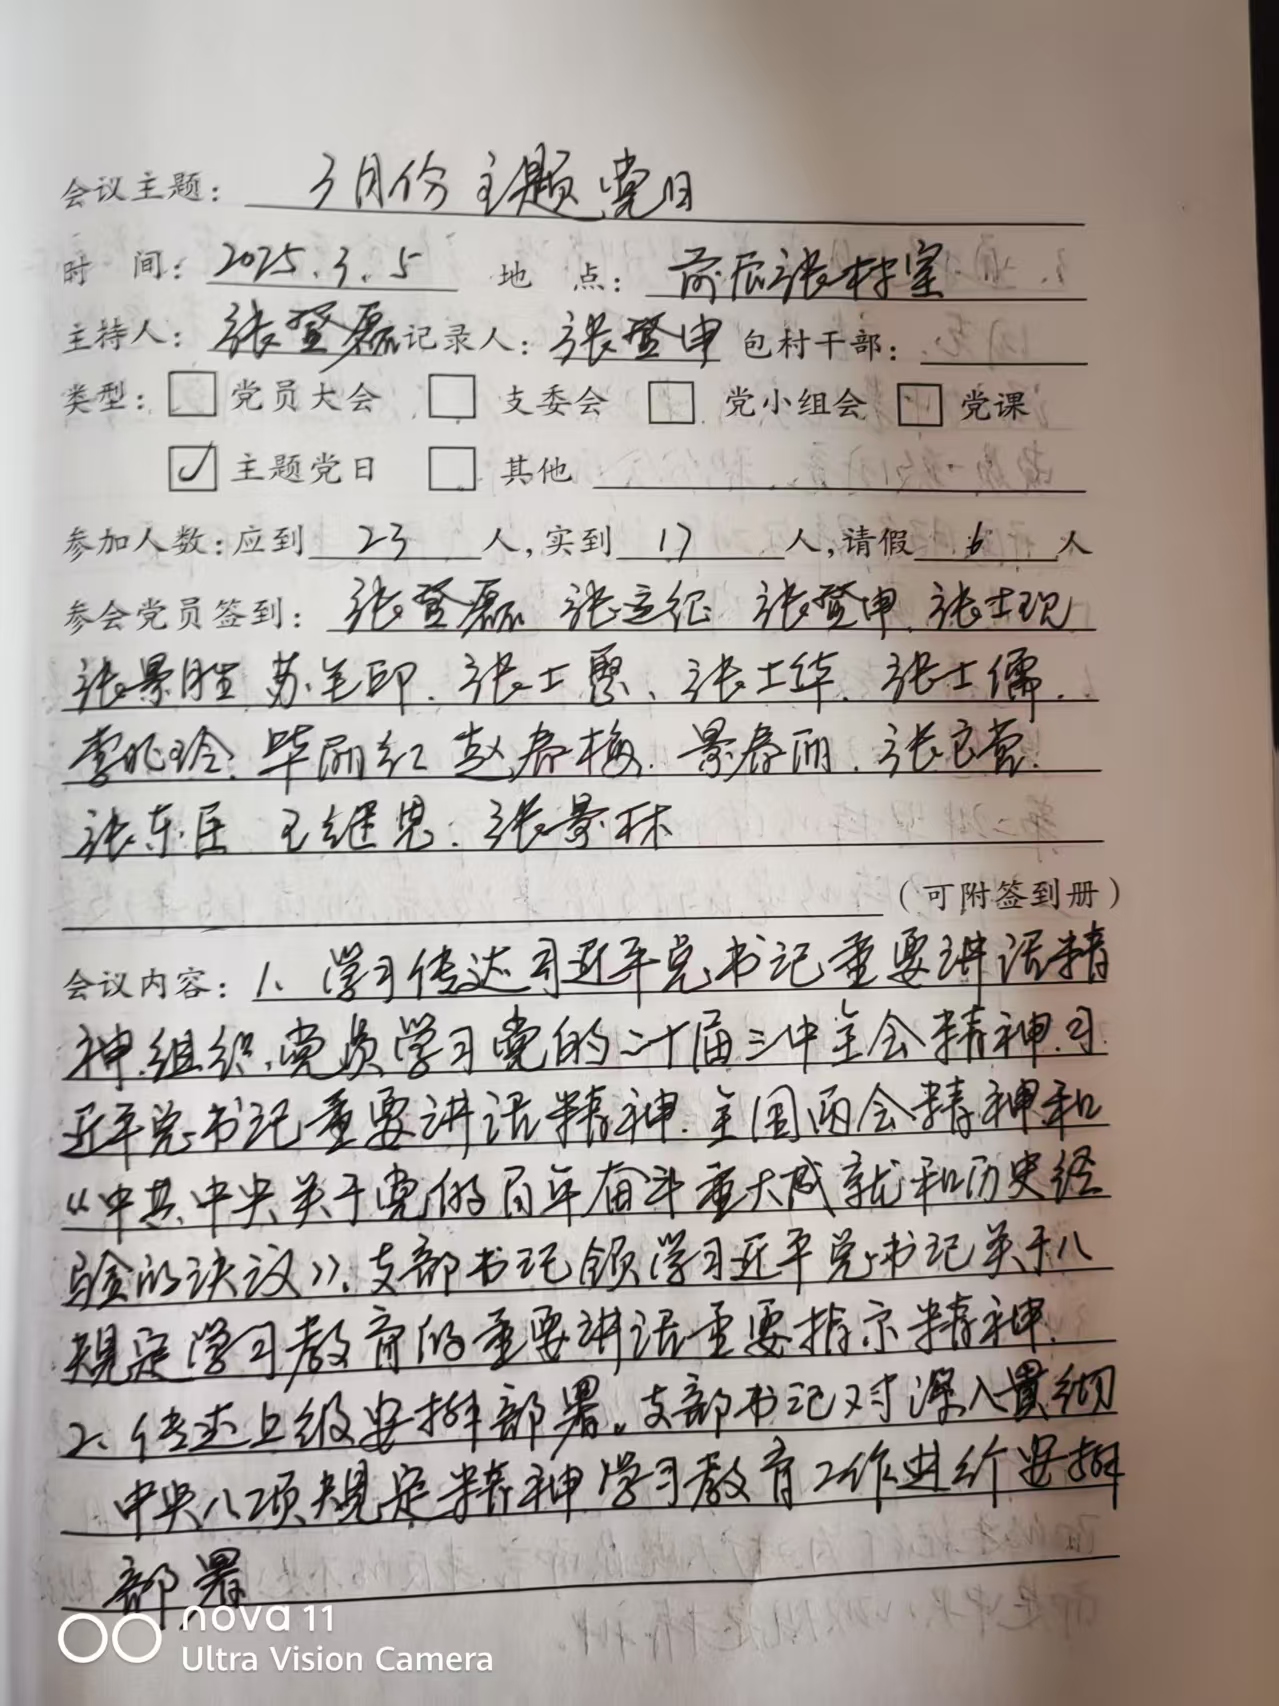 会议主题： 3月份主题党日
时 间： 2025.3.5 地 点： 前辰张村室
主持人： 张登磊 记录人： 张登申 包村干部：
类型： 党员大会 支委会 党小组会 党课
✓ 主题党日 其他
参加人数：应到 23 人，实到 17 人，请假 6 人
参会党员签到： 张登磊 张立征 张登申、张士现
张景胜 苏毛印、张士聚、张士华、张士儒、
李兆玲、毕丽红 赵春梅、景春丽、张良营、
张东臣 王继思、张景林
（可附签到册）
会议内容： 1、学习传达习近平总书记重要讲话精
神、组织党员学习党的二十届三中全会精神、习
近平总书记重要讲话精神、全国两会精神和
《中共中央关于党的百年奋斗重大成就和历史经
验的决议》、支部书记领学习近平总书记关于八
规定学习教育的重要讲话重要指示精神、
2、传达上级安排部署。支部书记对深入贯彻
中央八项规定精神学习教育工作进行安排
部署
nova 11
Ultra Vision Camera